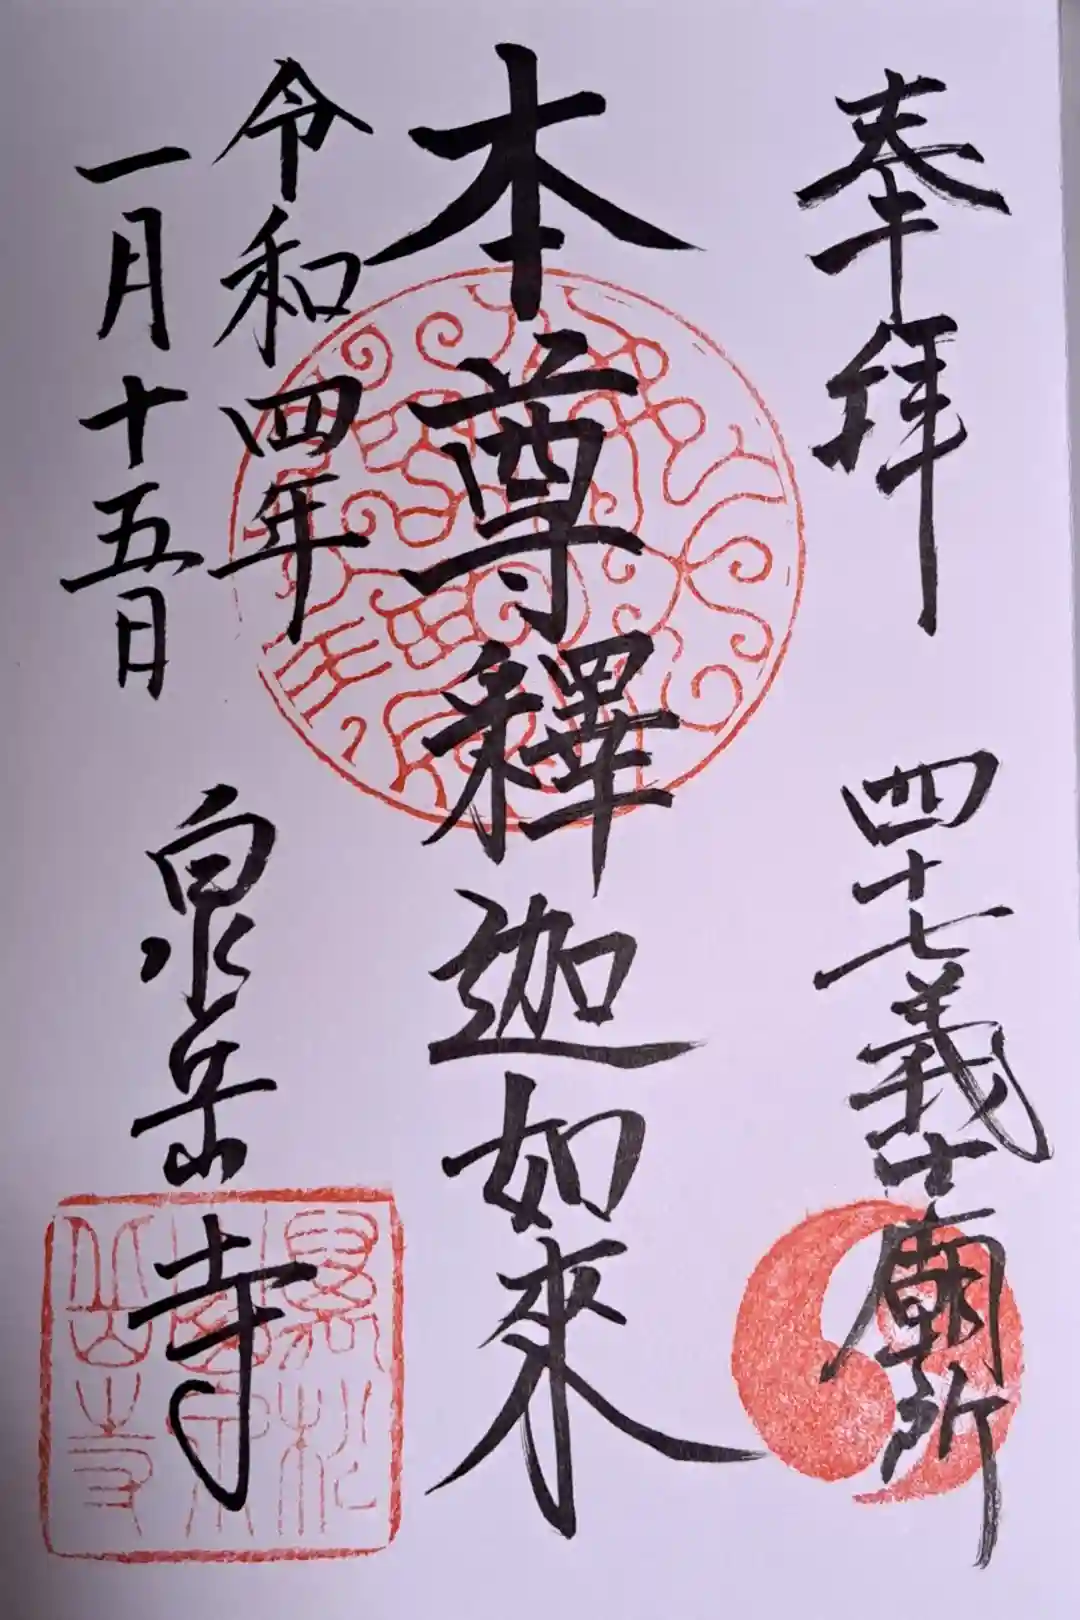 奉拝
四十七義士廟所
本尊釋迦如來
令和四年
一月十五日
泉岳寺